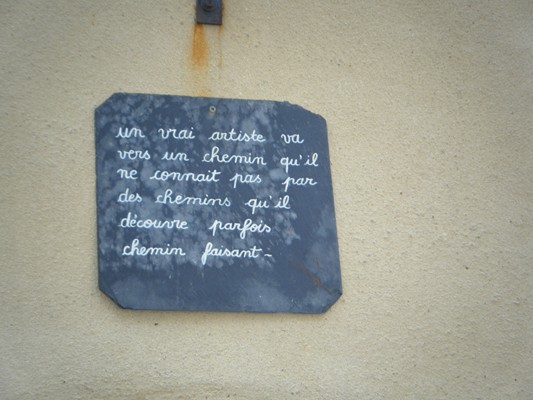 un vrai artiste va
vers un chemin qu'il
ne connait pas par
des chemins qu'il
découvre parfois
chemin faisant-